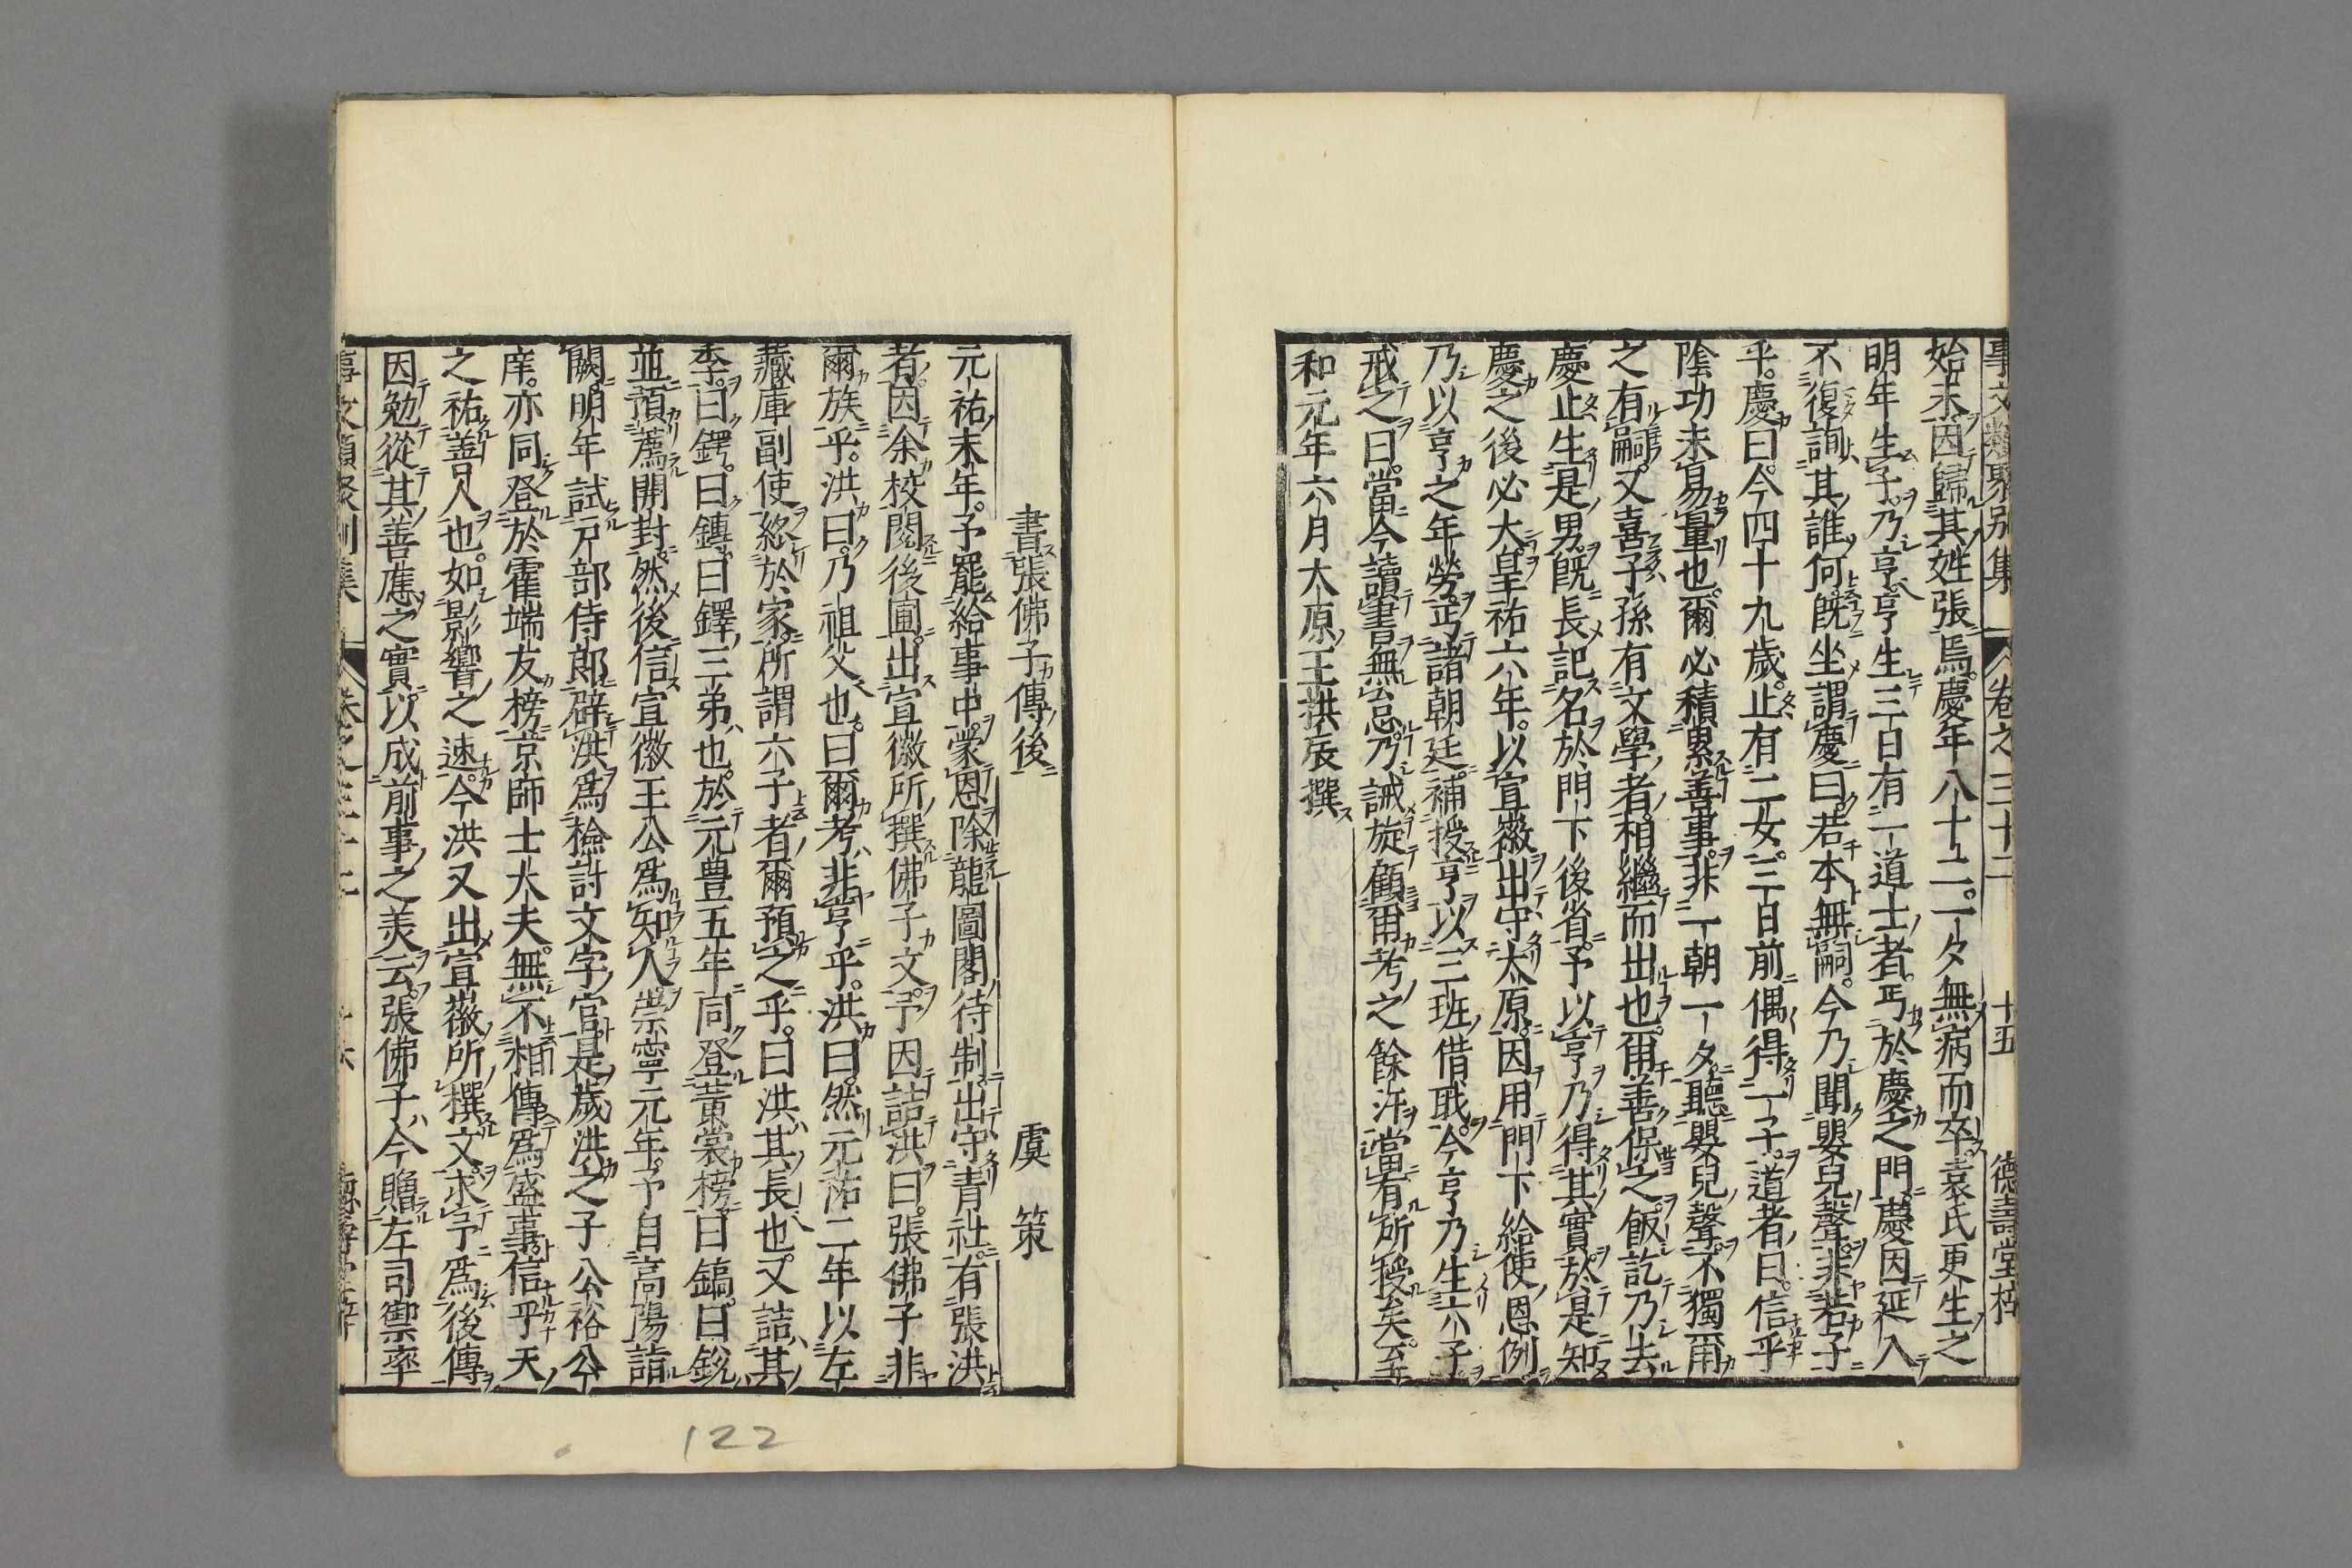 事文類聚別集 卷之三十二 十五 德壽堂梓
始末因歸其姓張焉慶年八十二一夕無病而卒袁氏更生之
明年生子乃亨亨生三日有一道士者丐於慶之門慶因延入
不復詢其誰何既坐謂慶曰若本無嗣今乃聞嬰兒聲非若子
乎慶曰今四十九歲止有二女三日前偶得一子道者曰信乎
陰功未易量也爾必積累善事非一朝一夕聽嬰兒聲不獨爾
之有嗣又喜子孫有文學者相繼而出也爾善保之飯訖乃去
慶止生是男既長記名於門下後省予以亨乃得其實於是知
慶之後必大皇祐六年以宣徽出守太原因用門下給使恩例
乃以亨之年勞丐諸朝廷補授亨以三班借職今亨乃生六子
戒之曰當今讀書無怠乃誠旋顧爾考之餘汴當有所授矣至
和元年六月太原王拱辰撰
書張佛子傳後 虞策
元祐末年予罷給事中蒙恩除龍圖閣待制出守青社有張洪
者因余校閱後圃出宣徽所撰佛子文予因詰洪曰張佛子非
爾族乎洪曰乃祖父也曰爾考非亨乎洪曰然元祐二年以左
藏庫副使終於家所謂六子者爾預之乎曰洪其長也又詰其
季曰鍔曰鏄曰鐸三弟也於元豊五年同登黃裳榜曰鎬曰銳
並預薦開封然後信宣徽王公爲知人崇寧元年予自高陽詣
闕明年試戶部侍郎辟洪爲檢討文字官是歲洪之子公裕公
庠亦同登於霍端友榜京師士大夫無不相傳爲盛事信乎天
之祐善人也如影響之速今洪又出宣徽所撰文求予爲後傳
因勉從其善應之實以成前事之美云張佛子今贈左司禦率